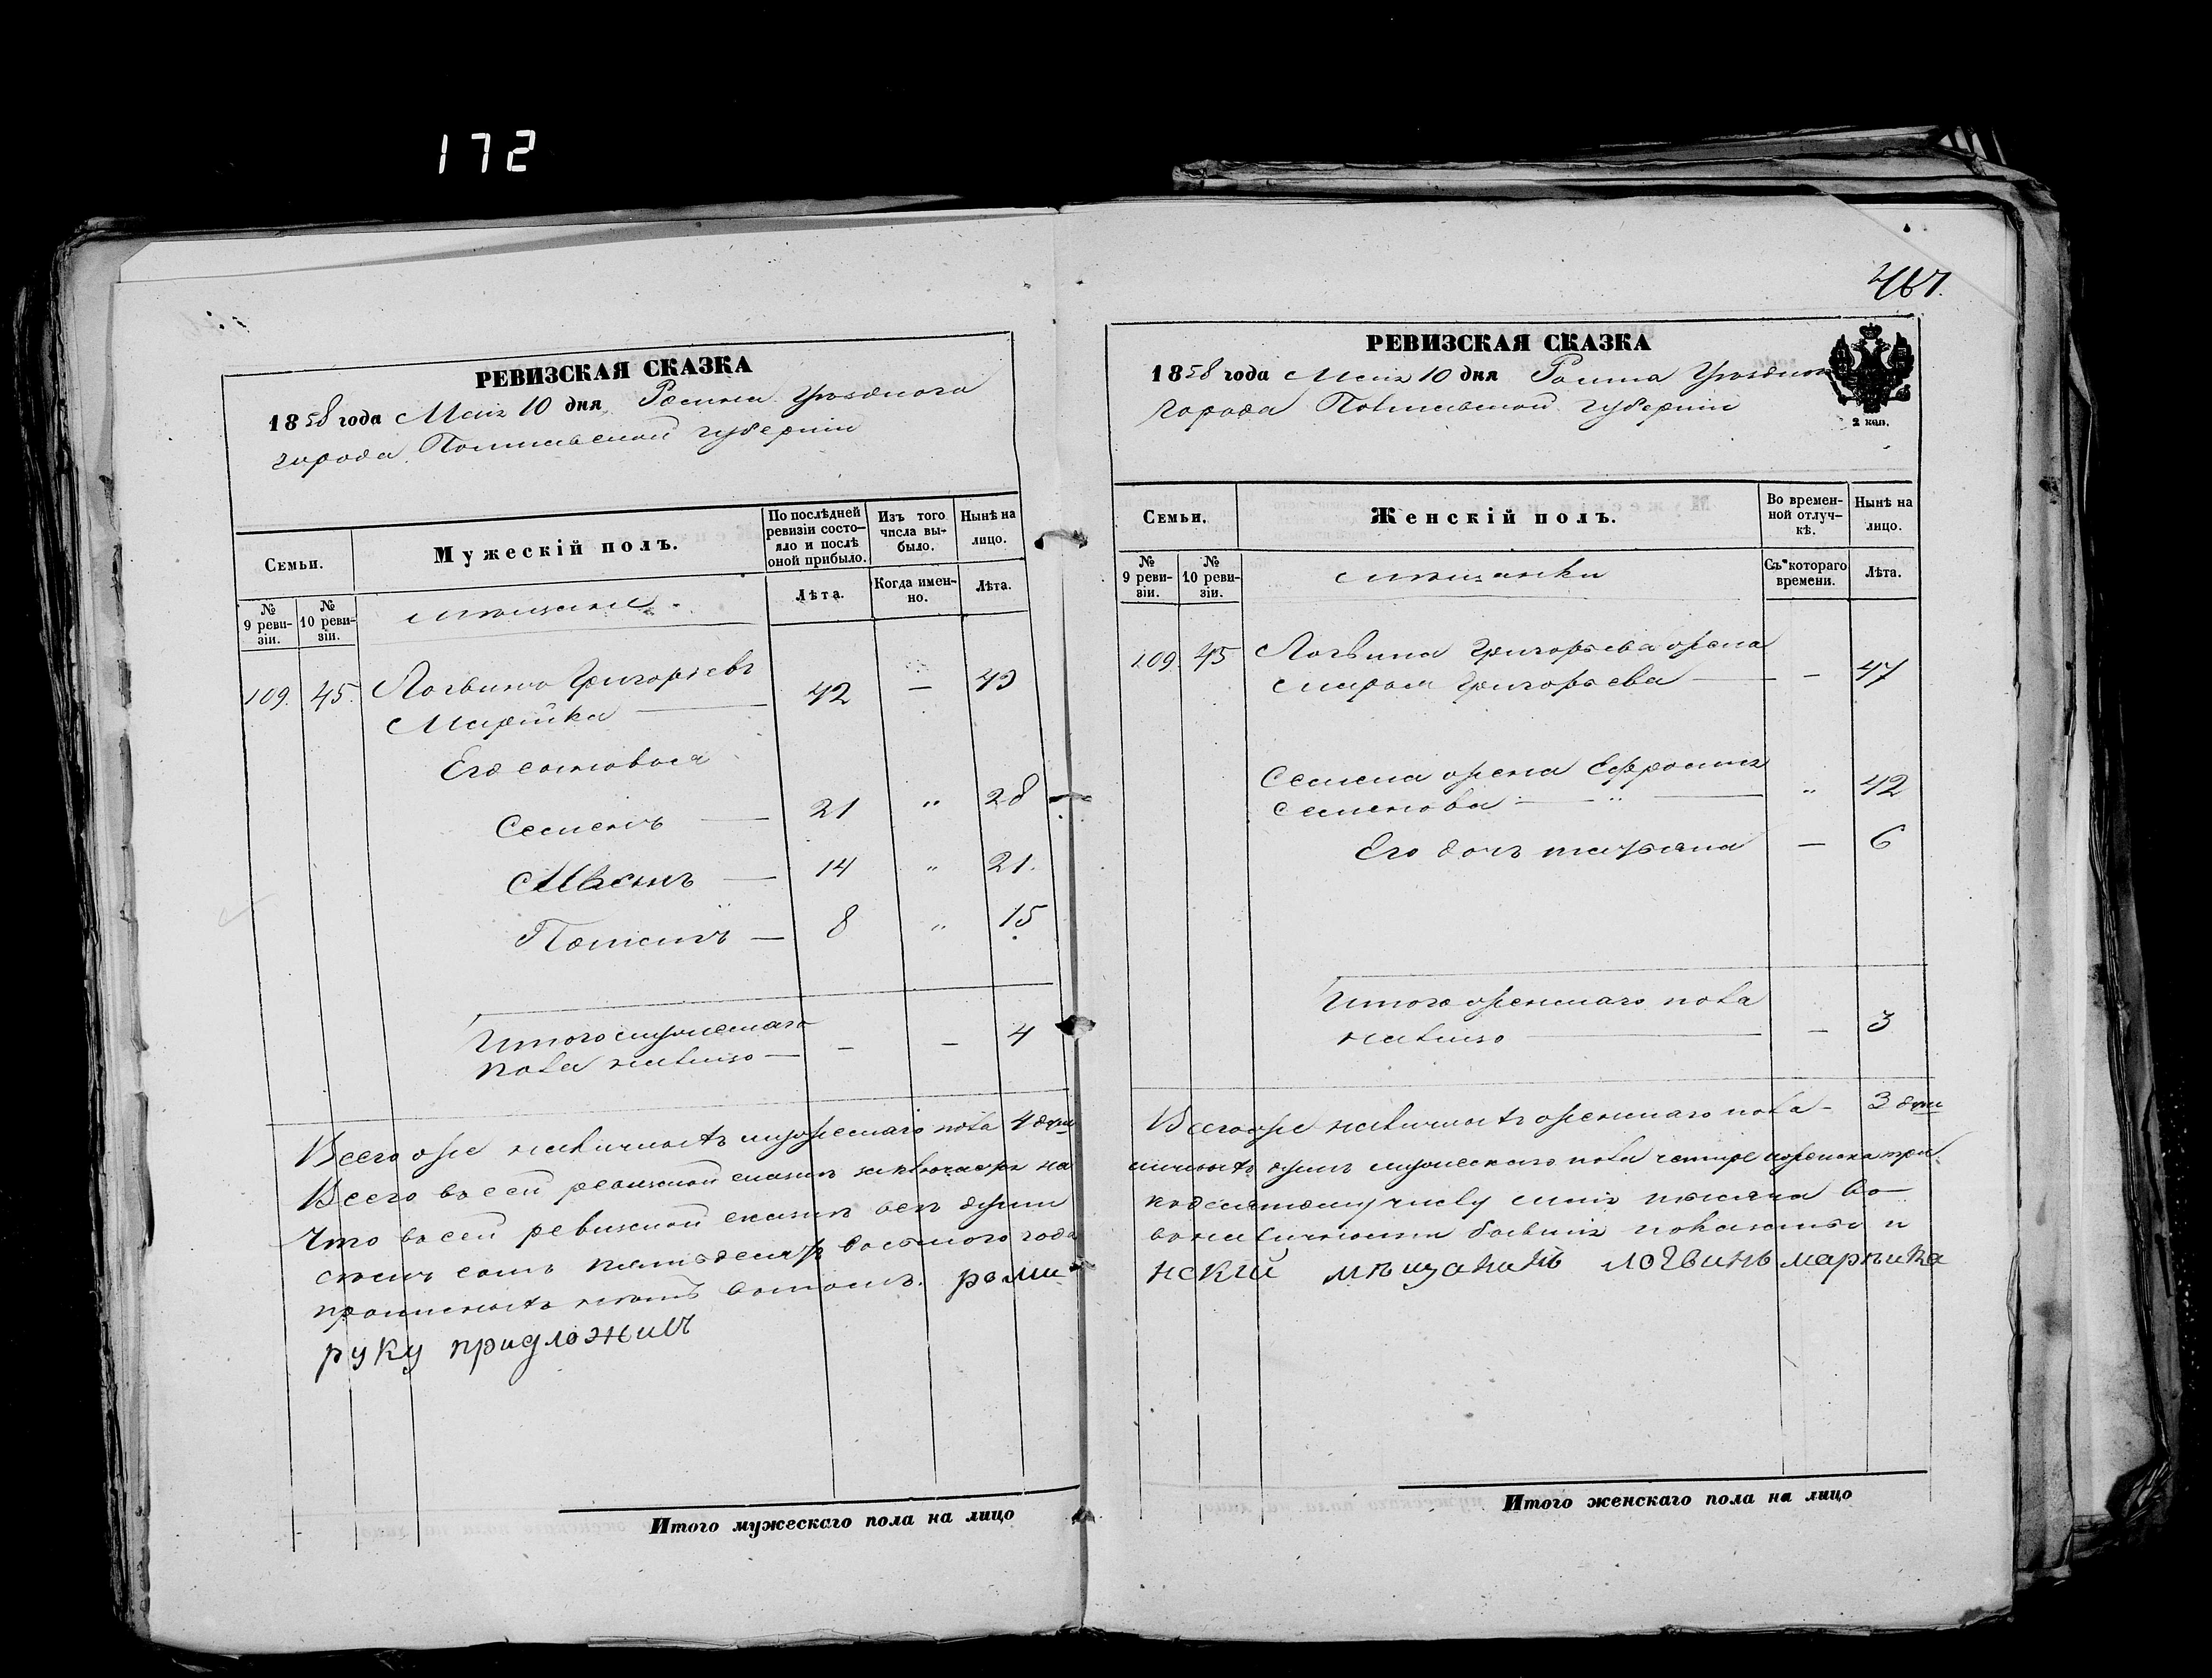 172
РЕВИЗСКАЯ СКАЗКА
1858 года Маія 10 дня Ромна Уѣзднаго
города Полтавской губерніи
Семьи.
Мужескій полъ.
По послѣдней ревизіи состо-
яло и послѣ
оной прибыло.
Изъ того
числа вы-
было.
Нынѣ на
лицо.
№
9 реви-
зіи.
№
10 реви-
зіи.
мѣщане
Лѣта.
Когда имен-
но.
Лѣта.
109. 45. Логвинъ Григорьевъ 42 — 49
Марѣйка
Его сыновья
Семенъ — 21 " 28
14 " 21.
8 " 15
Итого мужескаго
пола налицо — — — 4
Всего же наличность мужескаго пола 4 души
Всего в сей ревизской сказкѣ заключается на
Что в сей ревизской сказкѣ всѣ души
пятьдесятъ восьмого года
роми
руку придложилъ
Итого мужескаго пола на лицо
467.
РЕВИЗСКАЯ СКАЗКА
1858 года Маія 10 дня Ромна Уѣзднаго
города Полтавской губерніи
2 коп.
Семьи.
Женскій полъ.
Во времен-
ной отлуч-
кѣ.
Нынѣ на
лицо.
№
9 реви-
зіи.
№
10 реви-
зіи.
мѣщанки
Съ котораго
времени.
Лѣта.
109. 45 Логвина Григорьева жена
Григорьева — — 47
Семена жена Ефросинія
Семенова — " — " 42
Его дочь татьяна — 6
Итого женскаго пола
налицо — — 3
Всего же наличность женскаго пола — 3 души
душъ мужескаго пола четыре женска три
по десятому числу маія тысяча во
наличности бывшія показаны и
нский мѣщанинъ логвинъ марѣика
Итого женскаго пола на лицо